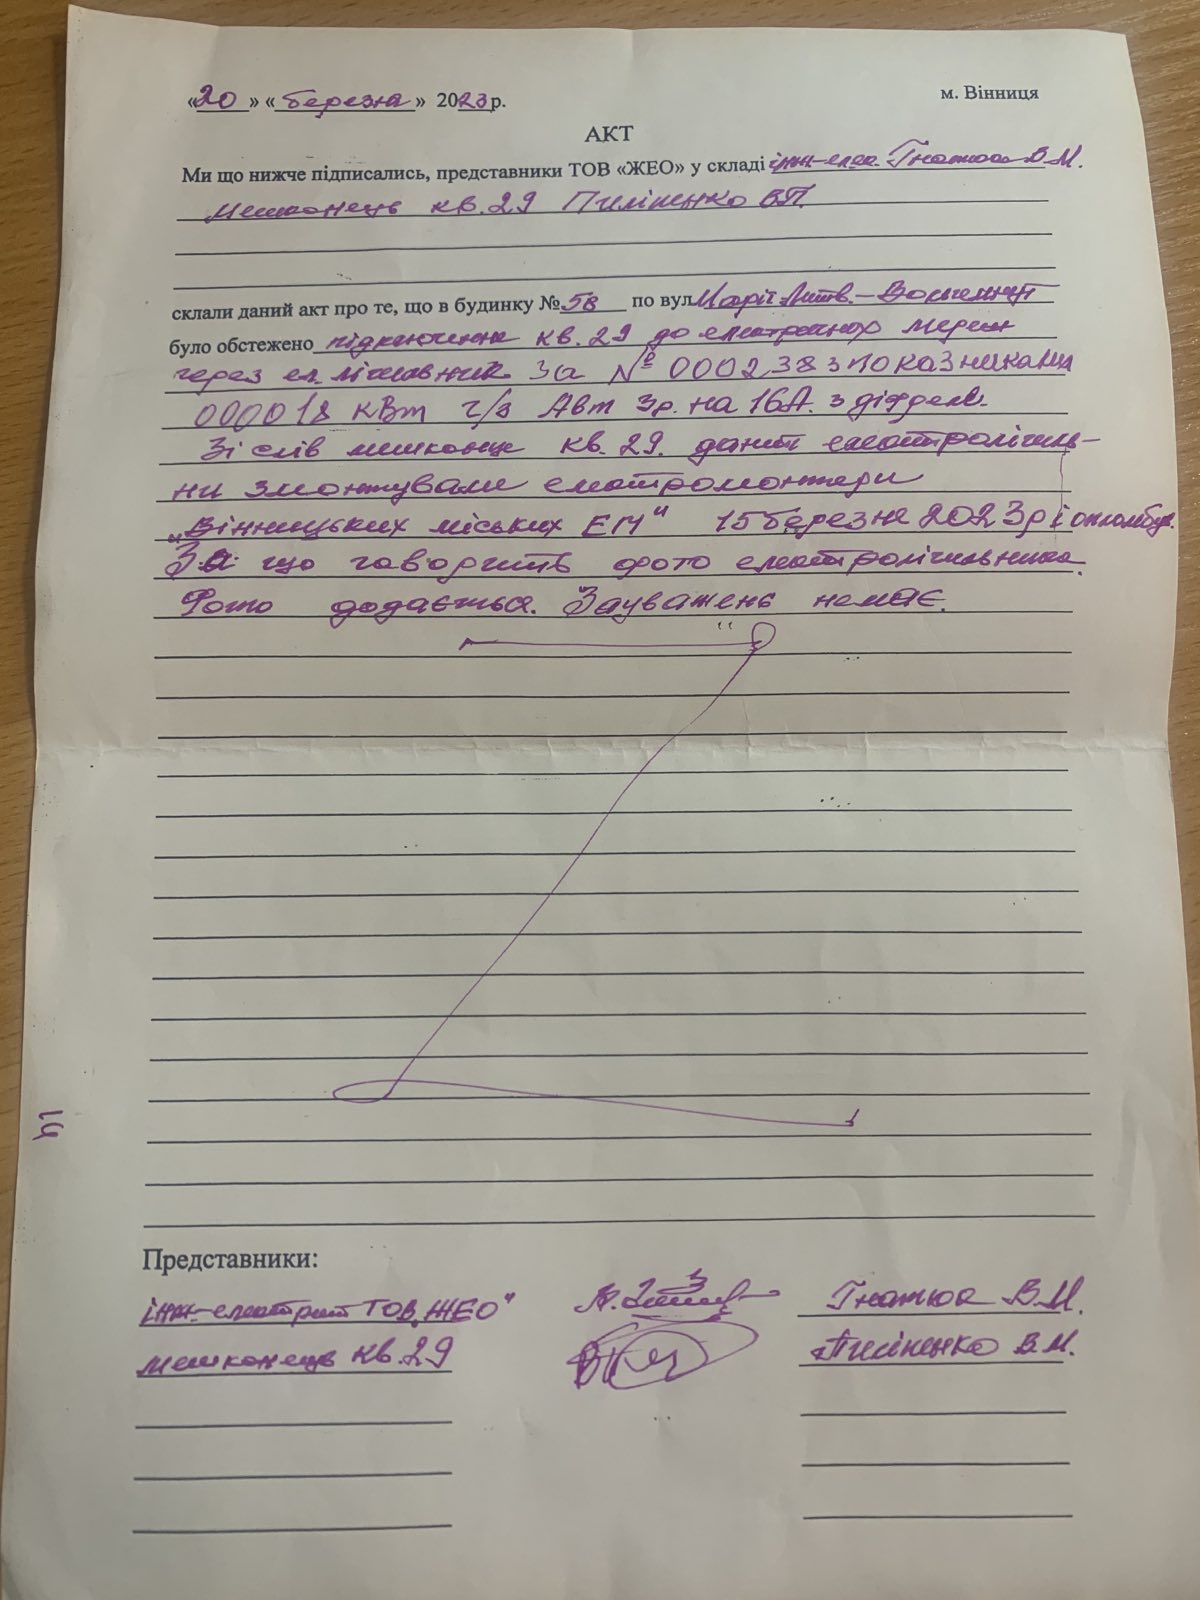 «20» «березня» 2023р. м. Вінниця
АКТ
Ми що нижче підписались, представники ТОВ «ЖЕО» у складі інж-елек. Гнатюк В.М.
мешканець кв.29 Пиліпенко В.П.
склали даний акт про те, що в будинку №58 по вул. Марії Литв.-Вольгемут
було обстежено підключення кв.29 до електричних мереж
через ел. лічильник за № 0002383 показниками
000018 кВт ч/з Авт зр. на 16А. з
Зі слів мешканця кв.29. даний електролічиль-
ник змонтували електромонтери
„Вінницьких міських ЕМ" 15 березня 2023р і опломбув.
За що говорить фото електролічильника.
Фото додається. Зауважень немає.
Представники:
інж-електрик ТОВ „ЖЕО" Гнатюк В.М.
мешканець кв.29 Пиліпенко В.М.